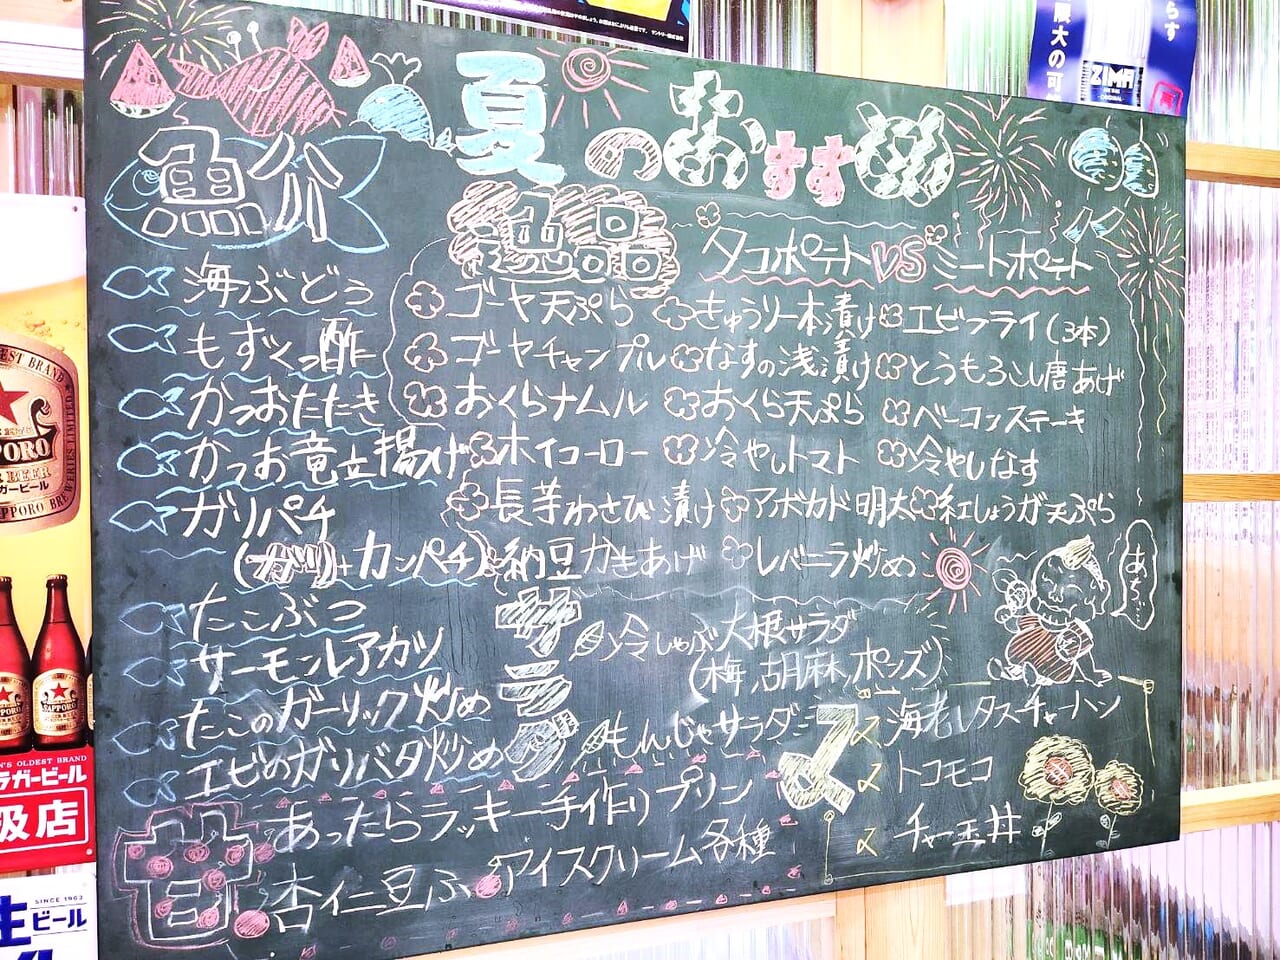 夏のおすすめ
魚介
海ぶどう
もずく酢
かつおたたき
かつお竜立揚げ
ガリパチ
(ガリ+カンパチ)
たこぶつ
サーモンレアカツ
たこのガーリック炒め
エビのガリバタ炒め
逸品
タコポテト VS ミートポテト
ゴーヤ天ぷら
きゅうり一本漬け
エビフライ(3本)
ゴーヤチャンプル
なすの浅漬け
とうもろこし唐あげ
おくらナムル
おくら天ぷら
ベーコンステーキ
ホイコーロー
冷やしトマト
冷やしなす
長芋わさび漬け
アボカド明太
紅しょうが天ぷら
納豆かきあげ
レバニラ炒め
あち…
サラダ
冷しゃぶ大根サラダ
(梅,胡麻,ポンズ)
もんじゃサラダ
〆
海老レタスチャーハン
トコモコ
チャー玉丼
甘
あったらラッキー手作りプリン
杏仁豆ふ
アイスクリーム各種
ZIMA
大の可
らす
SAPPORO
ラガービール
扱店
SINCE 1962
生ビール